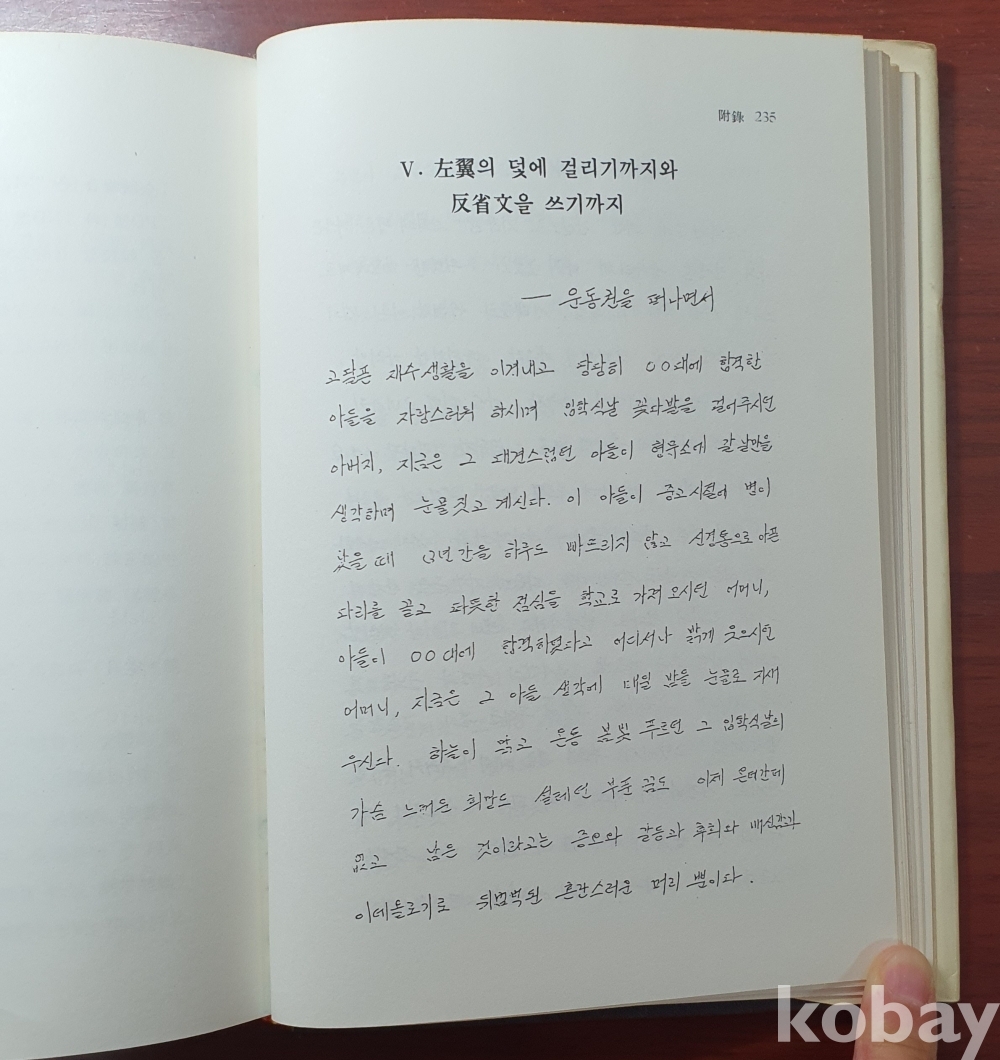 附錄 235
V. 左翼의 덫에 걸리기까지와
反省文을 쓰기까지
— 운동권을 떠나면서
고달픈 재수생활을 이겨내고 당당히 ○○대에 합격한
아들을 자랑스러워 하시며 입학식날 꽃다발을 걸어주시던
아버지, 지금은 그 대견스럽던 아들이 형무소에 갈 날만을
생각하며 눈물짓고 계신다. 이 아들이 중고시절에 병이
났을 때 3년간을 하루도 빠뜨리지 않고 신경통으로 아픈
다리를 끌고 따뜻한 점심을 학교로 가져오시던 어머니,
아들이 ○○대에 합격하였다고 어디서나 밝게 웃으시던
어머니, 지금은 그 아들 생각에 매일 밤을 눈물로 지새
우신다. 하늘이 맑고 온통 봄빛 푸르던 그 입학식날의
가슴 느꺼운 희망도 설레던 부푼 꿈도 이제 온데간데
없고 남은 것이라고는 증오와 갈등과 후회와 배신감과
이데올로기로 뒤범벅된 혼란스러운 머리 뿐이다.
kobay